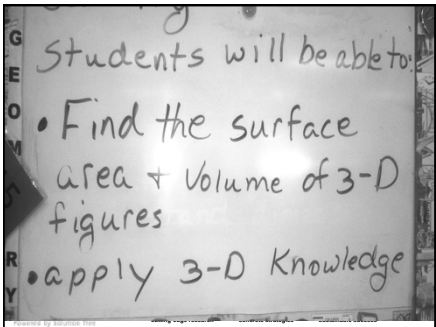 Students will be able to:
• Find the surface
area + Volume of 3-D
figures
• apply 3-D Knowledge
G
E
O
M
R
Y
Powered by Solution Tree